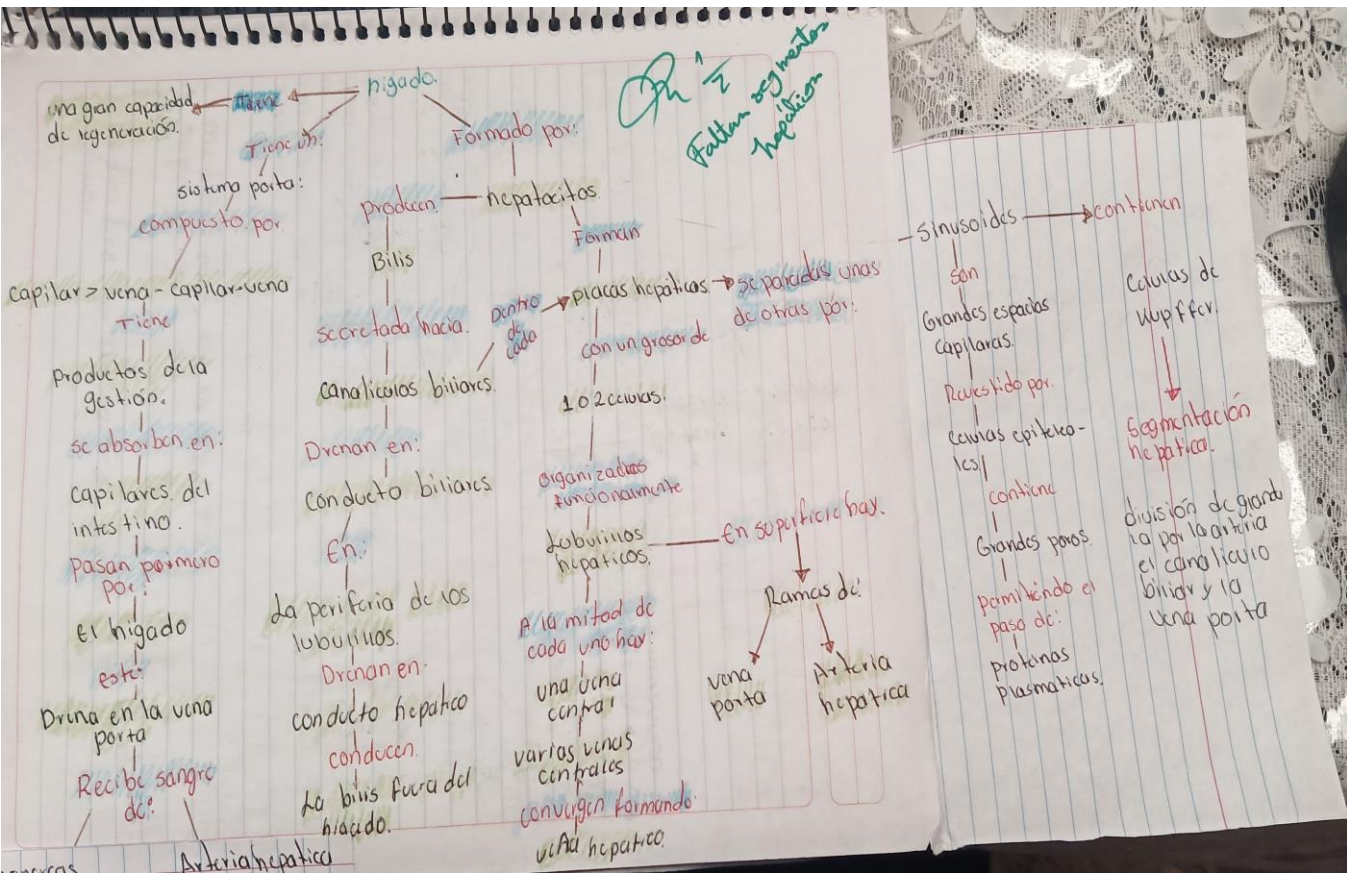 hígado.
una gran capacidad
de regeneración.
Tiene
Tiene un:
Formado por:
1/2
Faltan segmentos
hepáticos
sistema porta:
compuesto por
capilar > vena - capilar - vena
Tiene
productos de la
gestión.
se absorben en:
capilares del
intestino.
Pasan poimero
por:
el hígado
este:
Drena en la vena
porta
Recibe sangre
de:
Arteria hepatica
producen
hepatocitos.
Bilis
secretada hacia.
canaliculos biliares.
Dentro
de
cada
Drenan en:
conducto biliares
En:
La periferia de los
lobulillos.
Drenan en:
conducto hepatico
conducen.
La bilis fuera del
higado.
Forman
placas hepáticas
separadas unas
de otras por:
con un grosor de
1 o 2 celulas.
organizados
funcionalmente
Lobulillos
hepaticos.
En superficie hay.
Ramas de:
vena
porta
Arteria
hepatica
A la mitad de
cada uno hay:
una vena
central
varias venas
centrales
convergen formando:
vena hepatica.
- Sinusoides
contienen
son
Grandes espacios
capilares.
Revestido por.
celulas epiteleo-
les
contiene
Grandes poros.
permitiendo el
paso de:
proteinas
plasmaticas.
Celulas de
kupffer.
Segmentación
hepatica.
división de gland
la por la arteria
el canaliculo
biliar y la
vena porta